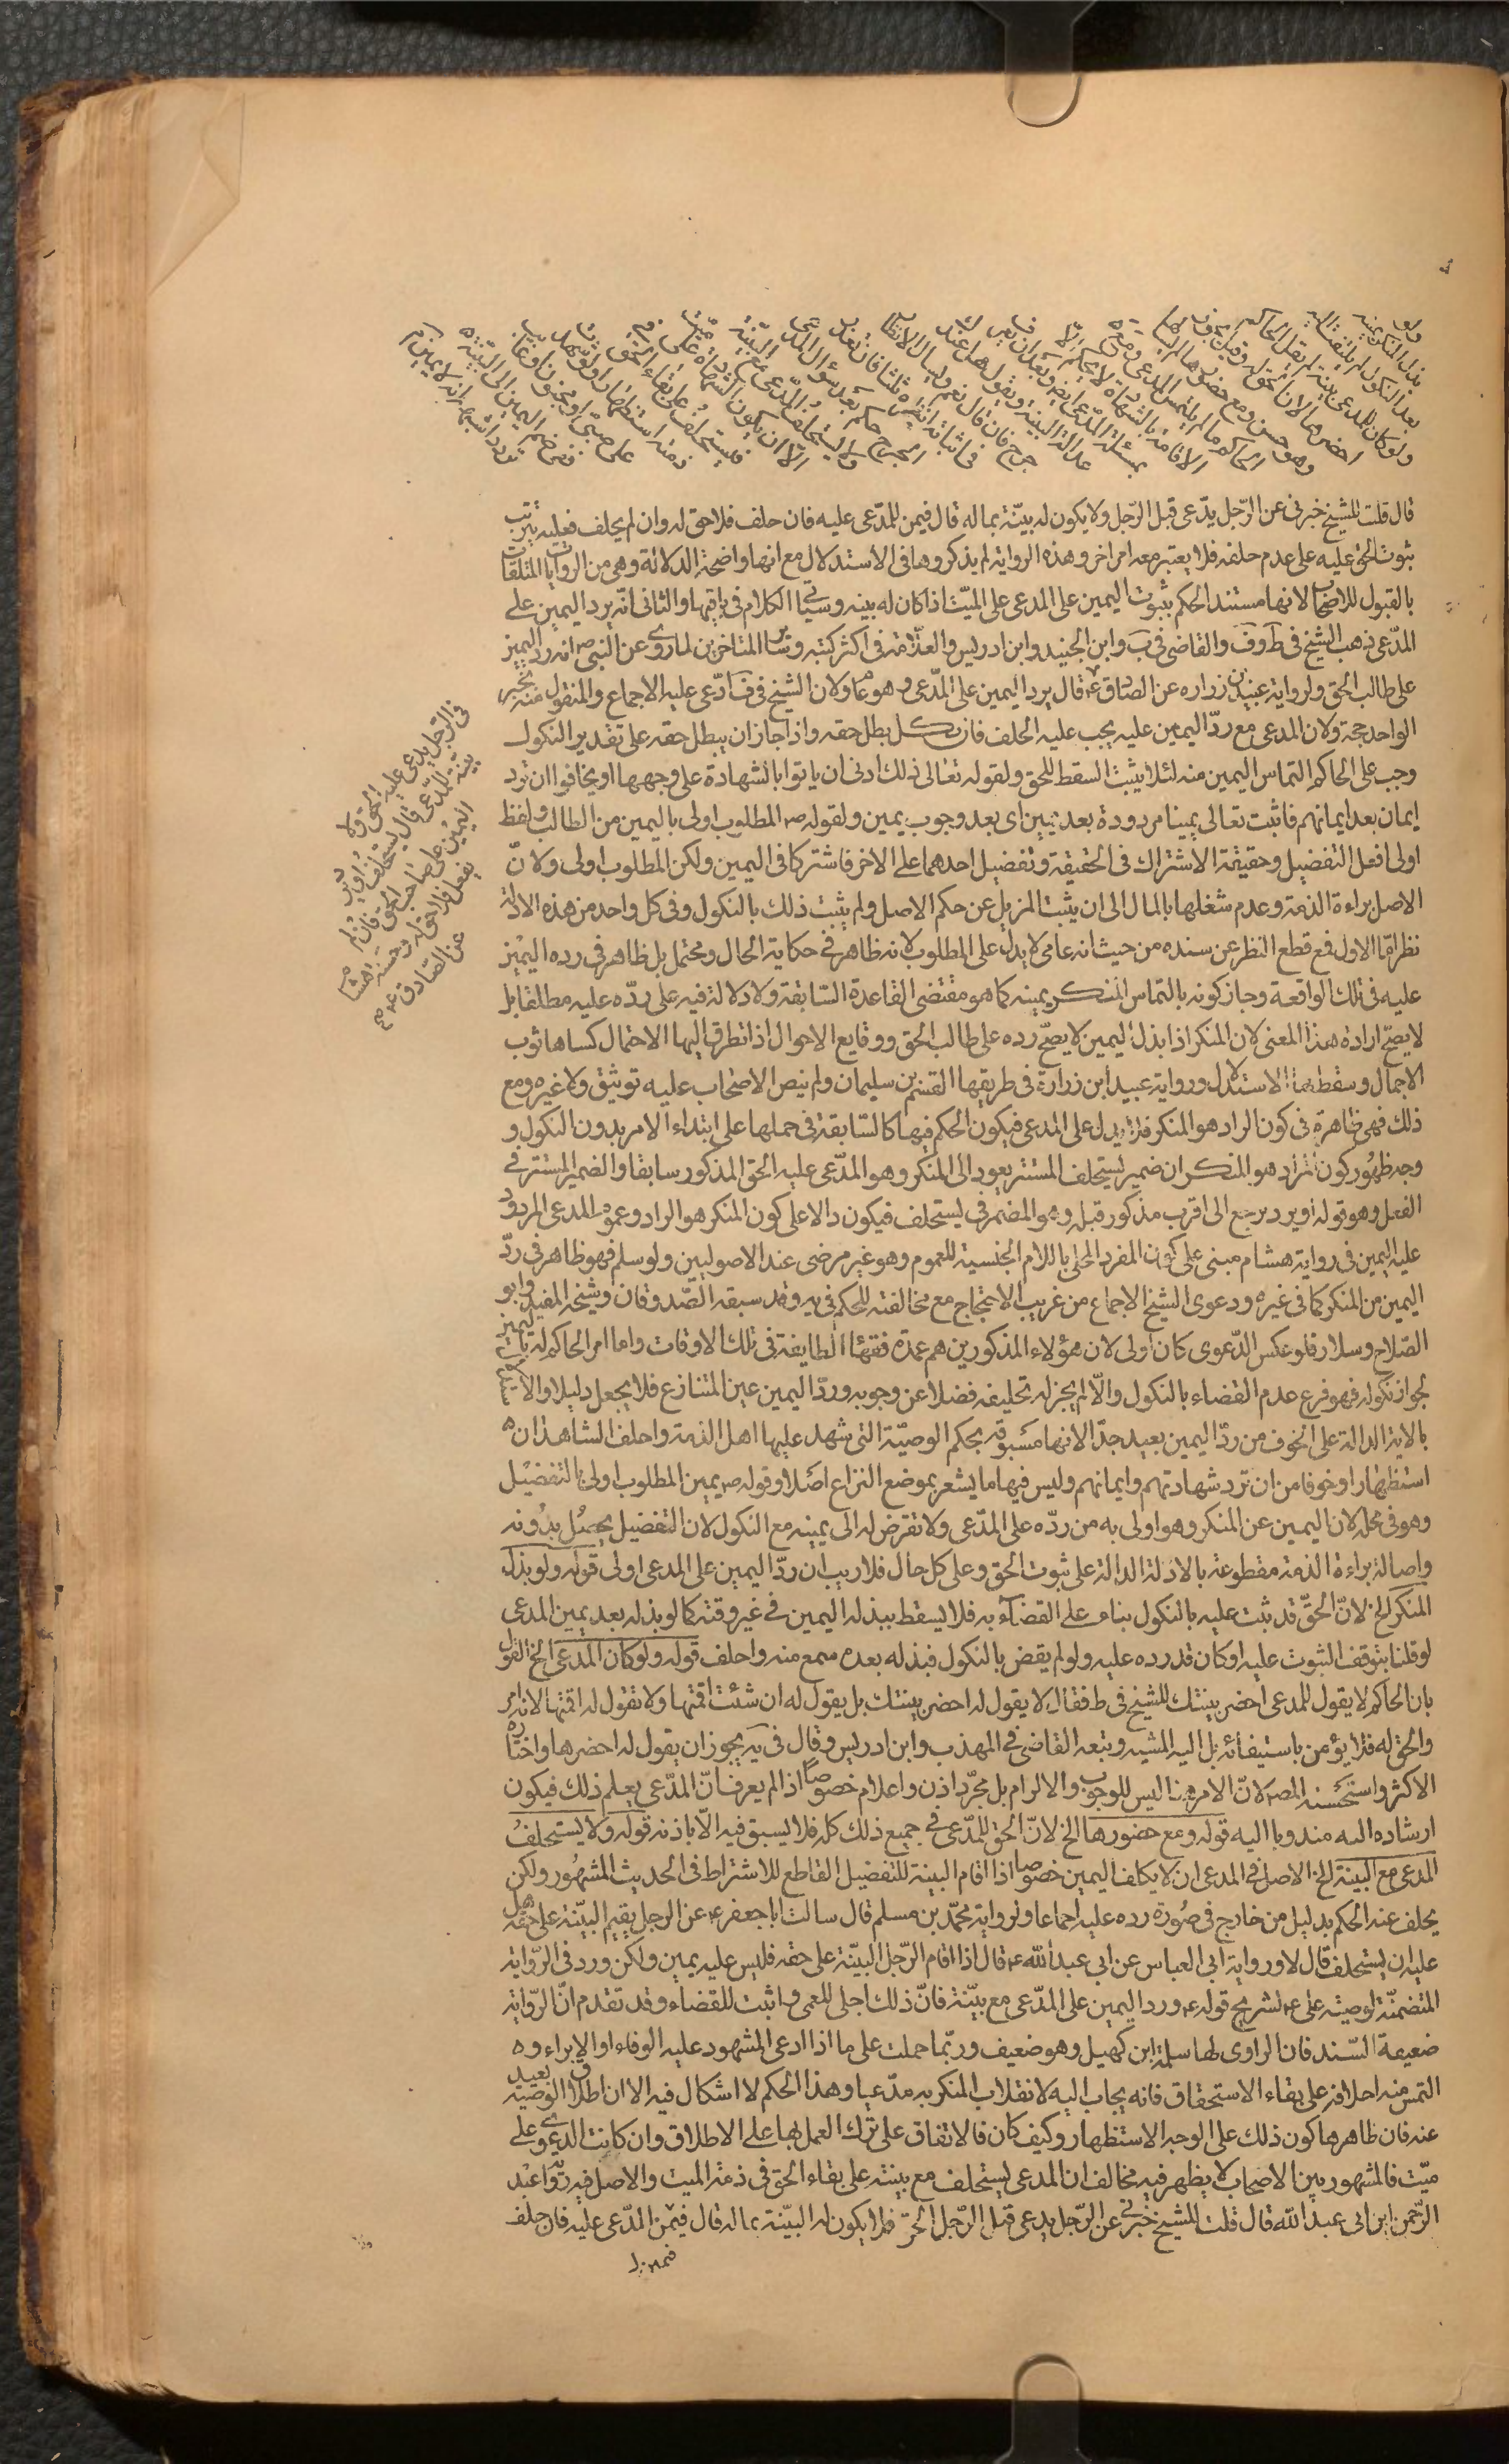 ولو
بذل المنكر يمينه
بعد النكول لم يلتفت اليه
ولو كان للمدعى بينة لم يقل الحاكم
احضرها لان الحق له وقيل يجوز
وهو حسن ومع حضورها لا يسألها
الحاكم ما لم يلتمس المدعى ومع
الاقامة بالشهادة لا يحكم الا
بمسئلة المدعى ايضا وبعد ان يعرف
عدالة البينة ويقول هل عندك
جرح فان قال نعم وسأل الانظار
فى اثباته انظره ثلثا فان تعذر
الجرح حكم بعد سؤال المدعى
ولا يستحلف المدعى مع البينة
الا ان يكون الشهادة على ميت
فيستحلف على بقاء الحق فى
ذمته استظهارا ولو شهدت
على صبى او مجنون او غائب
ففى ضم اليمين الى البينة
تردد اشبهه انه لا يمين
قال قلت للشيخ خبرنى عن الرّجل يدّعى قبل الرّجل ولا يكون له بيّنة بماله قال فيمين المدّعى عليه فان حلف فلا حق له وان لم يحلف فعليه رتب
ثبوت الحق عليه على عدم حلفه فلا يعتبر معه امر اخر وهذه الرواية لم يذكروها فى الاستدلال مع انها واضحة الدلالة وهى من الروايات المتلقات
بالقبول للاصحاب لانها مستند الحكم بثبوت اليمين على المدعى على الميّت اذا كان له بينه وسياتى الكلام فى باقيها والثانى انّه يرد اليمين على
المدّعى ذهب الشيخ فى ط وف والقاضى فى ب وابن الجنيد وابن ادريس والعلّامة فى اكثر كتبه وسائر المتاخرين لما روى عن النبى ص انه رد اليمين
على طالب الحق ولرواية عبيد بن زراره عن الصّادق ع قال يرد اليمين على المدّعى وهو عام ولان الشيخ فى ف ادّعى عليه الاجماع والمنقول منه بخبر
الواحد حجة ولان المدعى مع ردّ اليمين عليه يجب عليه الحلف فان نكل بطل حقه واذا جاز ان يبطل حقه على تقدير النكول
وجب على الحاكم التماس اليمين منه لئلا يثبت السقط للحق ولقوله تعالى ذلك ادنى ان ياتوا بالشهادة على وجهها او يخافوا ان ترد
ايمان بعد ايمانهم فاثبت تعالى يمينا مردودة بعد يمين اى بعد وجوب يمين ولقوله ص المطلوب اولى باليمين من الطالب ولفظ
اولى افعل التفضيل وحقيقة الاشتراك فى الحقيقة وتفضيل احدهما على الاخر فاشتركا فى اليمين ولكن المطلوب اولى ولانّ
الاصل براءة الذمة وعدم شغلها بالمال الى ان يثبت المزيل عن حكم الاصل ولم يثبت ذلك بالنكول وفى كل واحد من هذه الادلة
نظر امّا الاول فمع قطع النظر عن سنده من حيث انه عامى لا يدل على المطلوب لانه ظاهر فى حكاية الحال ومحتمل بل ظاهر فى رده اليمين
عليه فى تلك الواقعة وجاز كونه بالتماس المنكر يمينه كما هو مقتضى القاعدة السّابقة ولا دلالة فيه على ردّه عليه مطلقا بل
لا يصحّ ارادة هذا المعنى لان المنكر اذا بذل اليمين لا يصحّ رده على طالب الحق ووقايع الاحوال اذا تطرق اليها الاحتمال كساها ثوب
الاجمال وسقط بها الاستدلال ورواية عبيد ابن زرارة فى طريقها القسم بن سليمان ولم ينص الاصحاب عليه توثيق ولا غيره ومع
ذلك فهى ظاهرة فى كون الراد هو المنكر فلا يدل على المدعى فيكون الحكم فيها كالسّابقة فى حملها على ابتداء الامر بدون النكول و
وجه ظهور كون الراد هو المنكر ان ضمير يستحلف المستتر يعود الى المنكر وهو المدّعى عليه الحق المذكور سابقا والضمير المستتر فى
الفعل وهو قوله او يرد يرجع الى اقرب مذكور قبله وهو المضمر فى يستحلف فيكون دالا على كون المنكر هو الراد وعموم المدعى المردود
عليه اليمين فى رواية هشام مبنى على كون المفرد المحلى باللام الجنسية للعموم وهو غير مرضى عند الاصوليين ولو سلم فهو ظاهر فى ردّ
اليمين من المنكر كما فى غيره ودعوى الشيخ الاجماع من غريب الاحتجاج مع مخالفته للحكم فى يه وقد سبقه الصّدوقان وشيخه المفيد وابو
الصّلاح وسلار فلو عكس الدّعوى كان اولى لان هؤلاء المذكورين هم عمدة فقهاء الطايفة فى تلك الاوقات واما امر الحاكم له باليمين
لجواز نكوله فهو فرع عدم القضاء بالنكول والّا لم يجز له تحليفه فضلا عن وجوبه وردّ اليمين عين المتنازع فلا يجعل دليلا والاستدلال
بالاية الدالة على الخوف من ردّ اليمين بعيد جدّا لانها مسبوقة بحكم الوصيّة التى شهد عليها اهل الذمة واحلف الشاهدان
استظهارا وخوفا من ان ترد شهادتهم وايمانهم وليس فيها ما يشعر بموضع النزاع اصلا وقوله ص يمين المطلوب اولى بالتفضيل
وهو فى محله لان اليمين عن المنكر وهو اولى به من ردّه على المدّعى ولا تعرّض له الى يمينه مع النكول لان التفضيل يحصل بدونه
واصالة براءة الذمة مقطوعة بالادلة الدالة على ثبوت الحق وعلى كل حال فلا ريب ان ردّ اليمين على المدعى اولى قوله ولو بذل
المنكر الخ لانّ الحقّ قد ثبت عليه بالنكول بناء على القضاء به فلا يسقط ببذله اليمين فى غير وقته كما لو بذله بعد يمين المدعى
لو قلنا بتوقف الثبوت عليه او كان قد رده عليه ولو لم يقض بالنكول فبذله بعده سمع منه واحلف قوله ولو كان المدعى الخ القول
بان الحاكم لا يقول للمدعى احضر بينتك للشيخ فى ط فقال لا يقول له احضر بينتك بل يقول له ان شئت اقمتها ولا تقول له اقمتها لانه امر
والحق له فلا يؤمر باستيفائه بل اليه المشيه وتبعه القاضى فى المهذب وابن ادريس وقال فى يه يجوز ان يقول له احضرها واختاره
الاكثر واستحسنه المصه لانّ الامر هنا ليس للوجوب والالزام بل مجرّد اذن واعلام خصوصا اذا لم يعرف انّ المدّعى يعلم ذلك فيكون
ارشاده اليه مندوبا اليه قوله ومع حضورها الخ لانّ الحق للمدّعى فى جميع ذلك كله فلا يسبق فيه الّا باذنه قوله ولا يستحلف
المدعى مع البينة الخ الاصل فى المدعى ان لا يكلف اليمين خصوصا اذا اقام البينة للتفضيل القاطع للاشتراط فى الحديث المشهور ولكن
يحلف عنه الحكم بدليل من خارج فى صورة رده عليه اجماعا ولرواية محمّد بن مسلم قال سالت ابا جعفر ع عن الرجل يقيم البيّنة على حقه هل
عليه ان يستحلف قال لا ورواية ابى العباس عن ابى عبد الله ع قال اذا اقام الرّجل البيّنة على حقه فليس عليه يمين ولكن ورد فى الرّواية
المتضمنّة لوصيته على ع لشريح قوله ع ورد اليمين على المدّعى مع بيّنة فانّ ذلك اجلى للعمى واثبت للقضاء وقد تقدم انّ الرّواية
ضعيفة السّند فان الراوى لها سلمة ابن كهيل وهو ضعيف وربّما حملت على ما اذا ادعى المشهود عليه الوفاء او الابراء و
التمس منه احلافه على بقاء الاستحقاق فانه يجاب اليه لانقلاب المنكر به مدّعيا وهذا الحكم لا اشكال فيه الا ان اطلاق الوصيّة بعيد
عنه فان ظاهرها كون ذلك على الوجه الاستظهار وكيف كان فالاتفاق على ترك العمل بها على الاطلاق وان كانت الدعوى على
ميّت فالمشهور بين الاصحاب لا يظهر فيه مخالف ان المدعى يستحلف مع بينته على بقاء الحق فى ذمة الميت والاصل فيه رواية عبد
الرّحمن ابن ابى عبد الله قال قلت للشيخ خبرنى عن الرّجل يدعى قبل الرّجل الحق فلا يكون له البيّنة بماله قال فيمين المدّعى عليه فان حلف
فى الرّجل يدعى عليه الحق ولا
بينة للمدّعى قال يستحلف او يرد
اليمين على صاحب الحق فان لم
يفعل فلا حق له وحسنة هشام
عن الصّادق ع